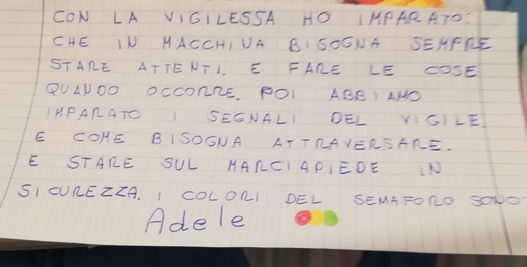 CON LA VIGILESSA HO IMPARATO:
CHE IN MACCHINA BISOGNA SEMPRE
STARE ATTENTI. E FARE LE COSE
QUANDO OCCORRE. POI ABBIAMO
IMPARATO I SEGNALI DEL VIGILE.
E COME BISOGNA ATTRAVERSARE.
E STARE SUL MARCIAPIEDE IN
SICUREZZA. I COLORI DEL SEMAFORO SONO
Adele